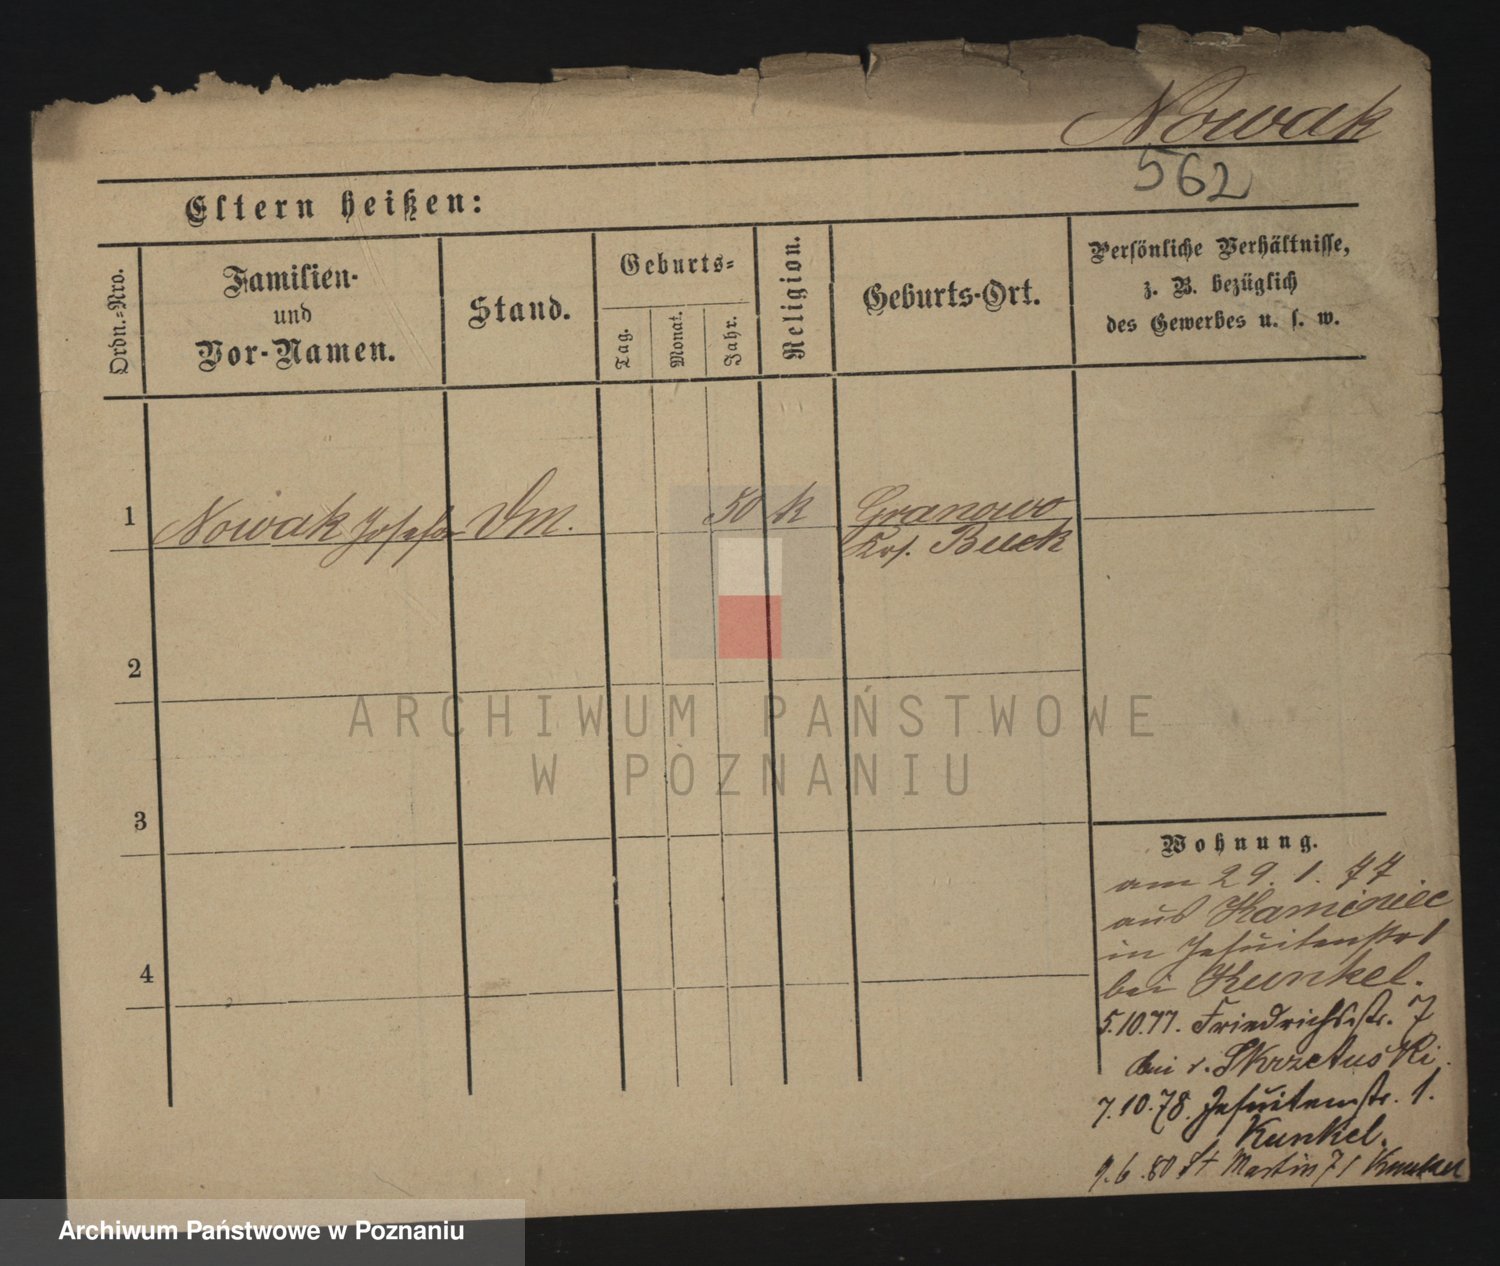 Nowak
562
Eltern heißen:
Ordn.-Nro.
Familien-
und
Vor-Namen.
Stand.
Geburts-
Tag.
Monat.
Jahr.
Religion.
Geburts-Ort.
Persönliche Verhältnisse,
z. B. bezüglich
des Gewerbes u. s. w.
1 Nowak Josefa DM. 50 k Granowo
Krs. Buck
2
3
4
Wohnung.
am 29. 1. 77
aus Kaminiec
in Jesuitenstr 1
bei Kunkel.
5.10.77. Friedrichsstr. 7
bei v. Skrzetuski
7.10.78. Jesuitenstr. 1.
Kunkel.
9.6.80 St Martin 71 Kunkel
ARCHIWUM PAŃSTWOWE
W POZNANIU
Archiwum Państwowe w Poznaniu